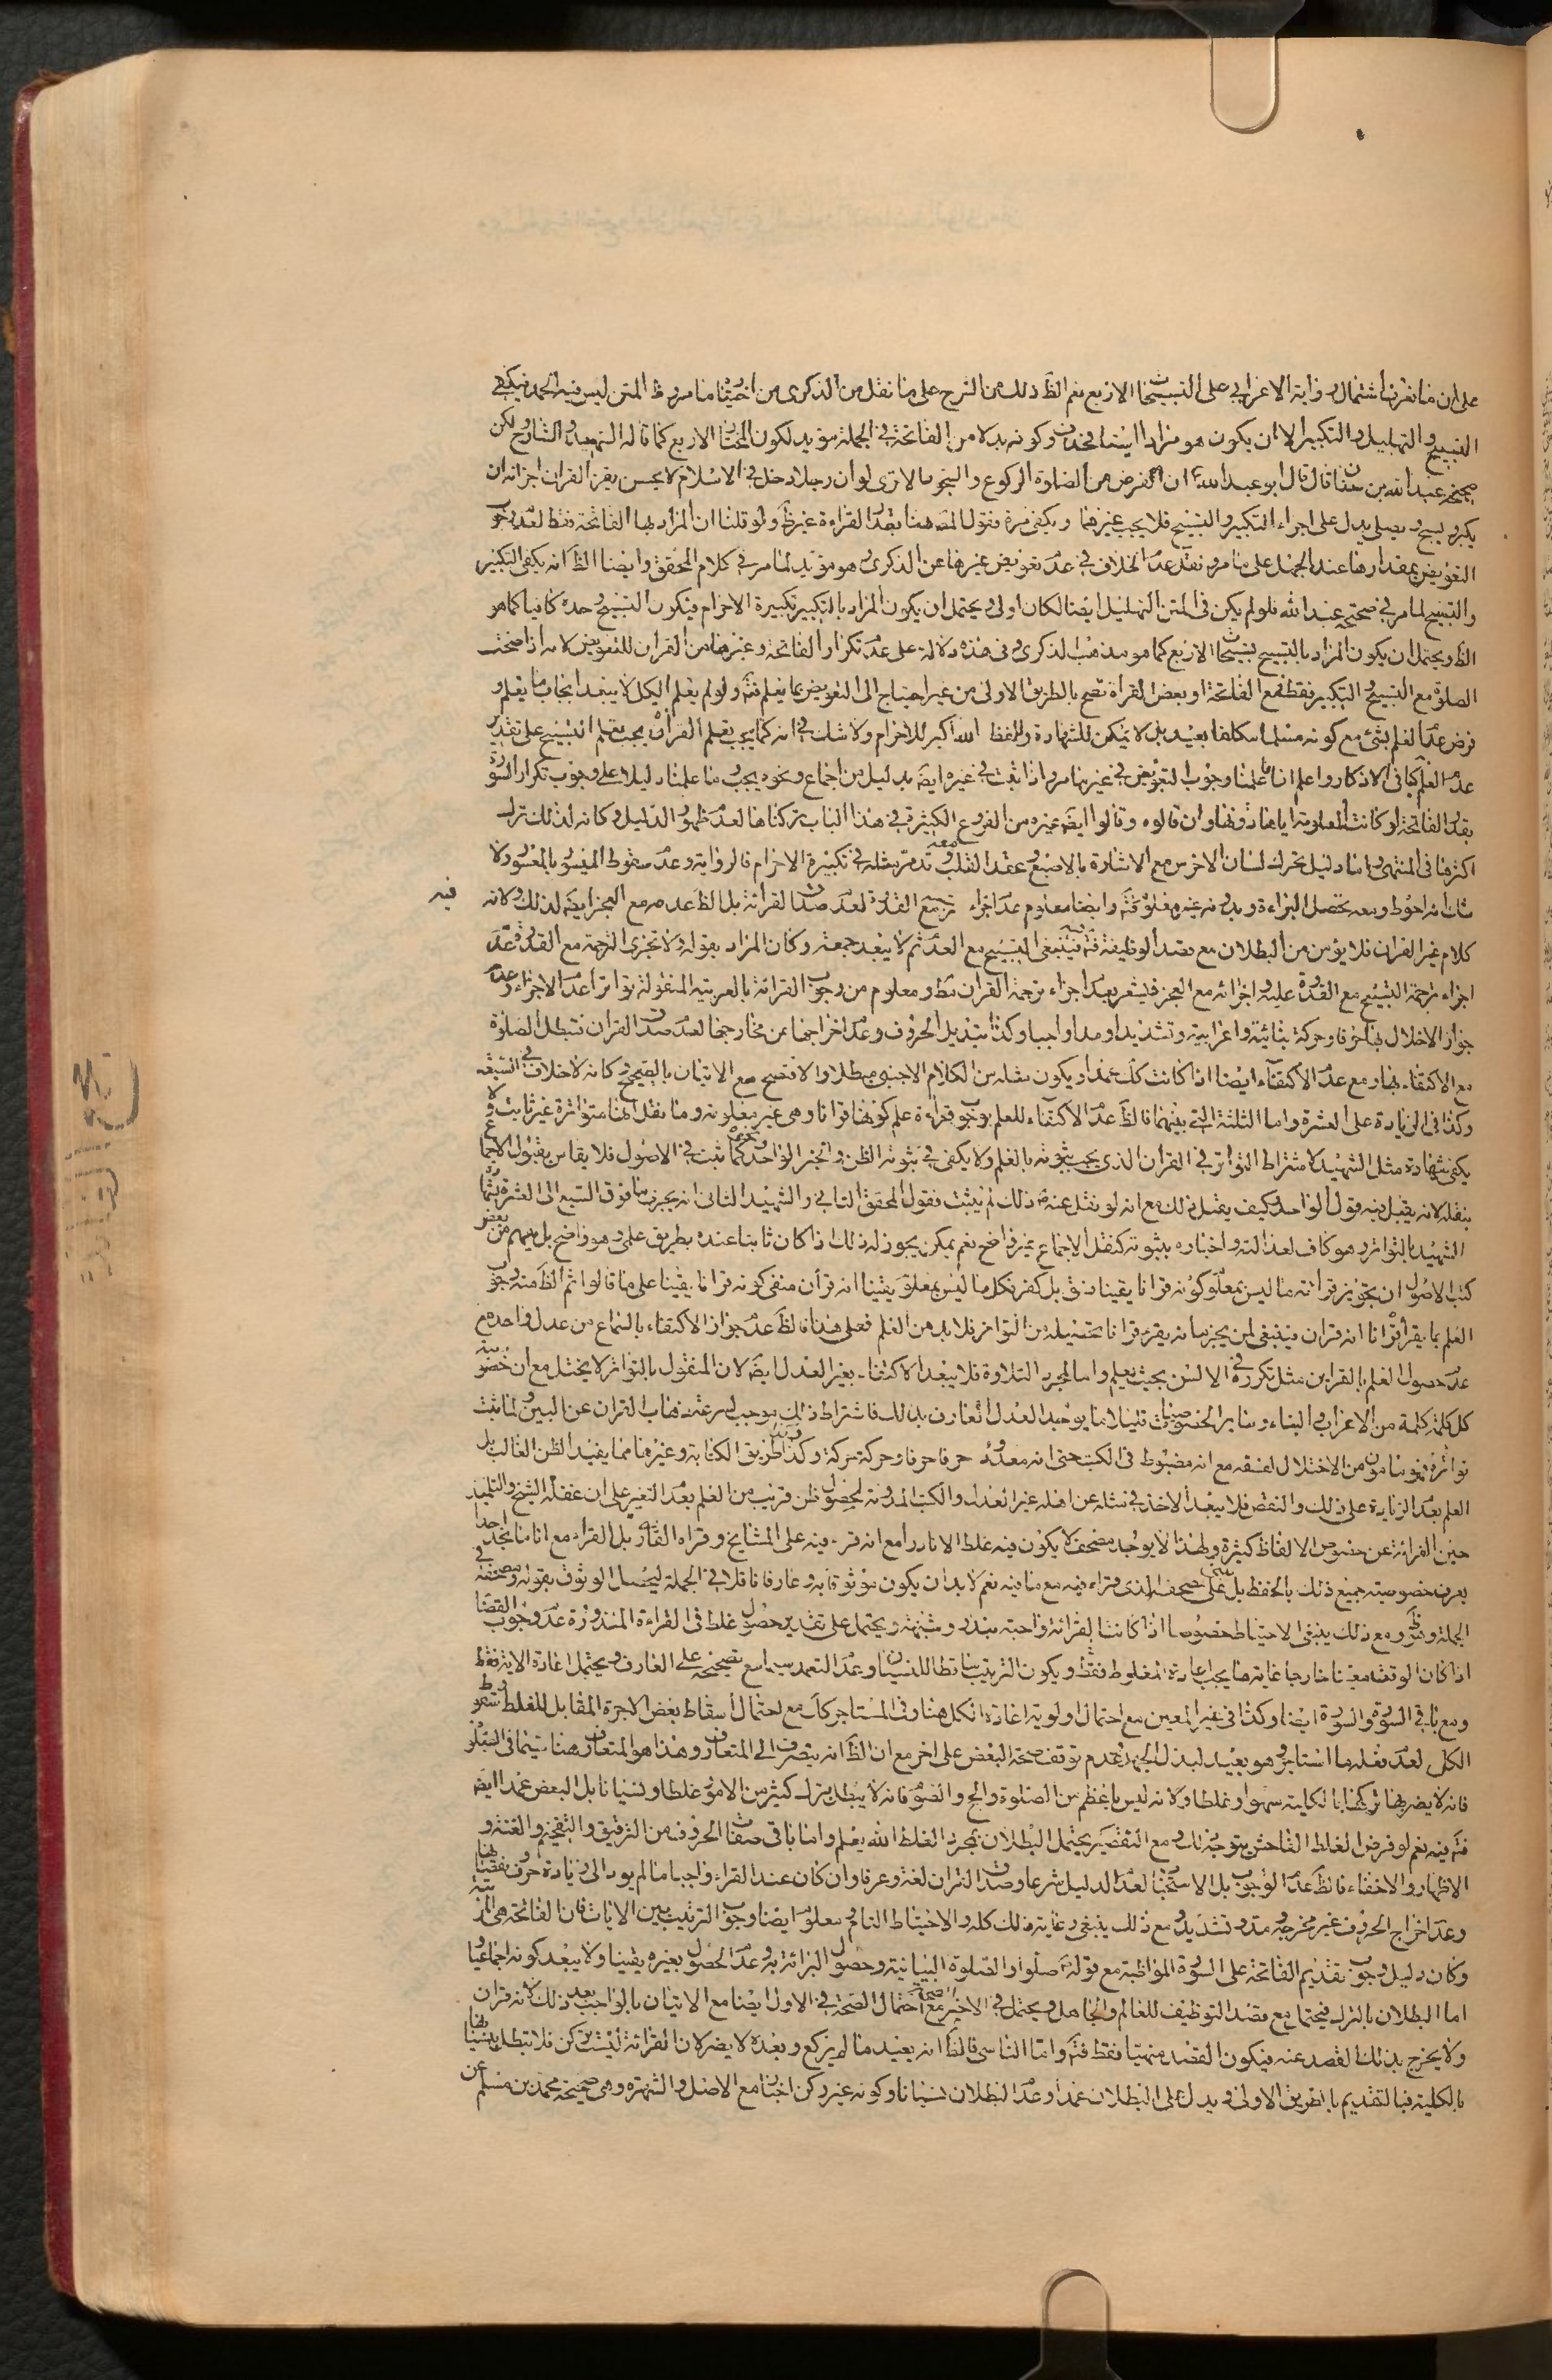 على ان ما نعرف اشتمال رواية الاعرابي على التسبيحات الاربع نعم الظ ذلك من الشرح على ما نقل من الذكرى من اخويتها ما مر وظ المتن ليس فيه الحمد فيكفي
التسبيح والتهليل والتكبير الا ان يكون هو مرادا ايضا فحذف وكونه بدلا من الفاتحة في الجملة مؤيد لكون المختار الاربع كما قاله الشهيد والشارح ولكن
صحيحة عبد الله بن سنان قال قال ابو عبد الله ع ان الفرض من الصلوة الركوع والسجود الا ترى لو ان رجلا دخل في الاسلام لا يحسن يقرء القران اجزائه ان
يكبر ويسبح ويصلي يدل على اجزاء التكبير والتسبيح فلا يجب غيرهما ويكفي مرة فقول المصـ هنا بقدر القراءة غير ظ ولو قلنا ان المراد بها الفاتحة فقط لعدم وجوب
التعويض بمقدارها عند الجهل على ما مر ونقل عدم الخلاف في عدم تعويض غيرها عن الذكرى وهو مؤيد لما مر في كلام المحقق وايضا الظ انه يكفي التكبير
والتسبيح لما مر في صحيحة عبد الله فلو لم يكن في المتن التهليل ايضا لكان اولى ويحتمل ان يكون المراد بالتكبير تكبيرة الاحرام فيكون التسبيح وحده كافيا كما هو
الظ ويحتمل ان يكون المراد بالتسبيح تسبيحات الاربع كما هو مذهب الذكرى وفي هذه دلالة على عدم تكرار الفاتحة وغيرها من القران للتعويض لانه اذا صحت
الصلوة مع التسبيح والتكبير فقط فمع الفاتحة او بعض القراة تصح بالطريق الاولى من غير احتياج الى التعويض بما يعلم فتم ولو لم يعلم الكل لا يبعد ايجاب ما يعلم و
فرض عدم العلم بشئ مع كونه مسلما مكلفا بعيد بل لا يمكن للشهادة وللفظ الله اكبر للاحرام ولا شك في انه كما يجب تعلم القرآن يجب تعلم التسبيح على تقدير
عدم العلم كباقي الاذكار واعلم انا ما علمنا وجوب التعويض في غير ما مر واذا ثبت في غيره ايضا بدليل من اجماع ونحوه يجب وما علمنا دليلا على وجوب تكرار السورة
بقدر الفاتحة لو كانت المعلومة اياها دونها وان قالوه وقالوا ايضا غيره من الفروع الكثيرة في هذا الباب تركناها لعدم ظهور الدليل وكانه لذلك ترك
اكثرها في المنتهى واما دليل تحريك لسان الاخرس مع الاشارة بالاصبع وعقد القلب معه قد مر مثله في تكبيرة الاحرام فالرواية وعدم سقوط الميسور بالمعسور ولا
شك انه احوط ومعه تحصل البراءة وبدونه غير معلوم فتم وايضا معلوم عدم اجزاء ترجمة مع القدرة لعدم صدق القرائة بل الظ عدمه مع العجز ايضا لذلك ولانه فيه
كلام غير القران فلا يؤمن من البطلان مع قصد الوظيفة فتم فينبغي التسبيح مع العدم ثم لا يبعد جمعه وكان المراد بقوله ولا تجزى الترجمة مع القدرة عدم
اجزاء ترجمة التسبيح مع القدرة عليه واجزائه مع العجز فليشعر بعدم اجزاء ترجمة القران مط ومعلوم من وجوب القرائة بالعربية المنقولة تواترا عدم الاجزاء وعدم
جواز الاخلال بها حرفا وحركة بنائية واعرابية وتشديدا ومدا واجبا وكذا تبديل الحروف وعدم اخراجها عن مخارجها لعدم صدق القران فتبطل الصلوة
مع الاكتفاء بها ومع عدم الاكتفاء ايضا اذا كانت كذلك عمدا ويكون مثله من الكلام الاجنبي مبطلا والا فتصح مع الاتيان بالصحيح وكانه لا خلاف في السبعة
وكذا في الزيادة على العشرة واما الثلثة التي بينهما فالظ عدم الاكتفاء للعلم بوجوب قراءة علم كونها قرانا وهي غير معلومة وما نقل انها متواترة غير ثابت ولا
يكفي شهادة مثل الشهيد لاشتراط التواتر في القران الذي يجب ثبوته بالعلم ولا يكفي في ثبوته الظن والخبر الواحد ونحوه كما ثبت في الاصول فلا يقاس بقبول الاجماع
بنقله لانه يقبل فيه قول الواحد وكيف يقبل ذلك مع انه لو نقل عنه ص ذلك لم يثبت فقول المحقق الثاني والشهيد الثاني انه يجزي ما فوق السبع الى العشرة بشهادة
الشهيد بالتواتر وهو كاف لعدالته واخباره بثبوته كنقل الاجماع غير واضح نعم يمكن يجوز له ذلك اذا كان ثابتا عنده بطريق علمي وهو واضح بل يفهم من بعض
كتب الاصول ان تجويز قرائة ما ليس بمعلوم كونه قرانا يقينا فسق بل كفر فكل ما ليس بمعلوم يقينا انه قرآن منفي كونه قرانا يقينا على ما قالوا ثم الظ منه وجوب
العلم بما يقرأ قرانا انه قران فينبغي لمن يجزم انه يقرء قرانا تحصيله من التواتر فلا بد من العلم فعلى هذا فالظ عدم جواز الاكتفاء بالسماع من عدل واحد مع
عدم حصول العلم بالقراين مثل تكرره في الالسن بحيث يعلم واما لمجرد التلاوة فلا يبعد الاكتفاء بغير العدل ايضا لان المنقول بالتواتر لا يختل مع ان خصوصية
كل كلمة كلمة من الاعراب والبناء وسائر الخصوصيات قليلا ما يوجد العدل العارف بذلك فاشتراط ذلك موجب لسرعة ذهاب القران عن البين ولما ثبت
تواتره فهو مامون من الاختلال لفسقه مع انه مضبوط في الكتب حتى انه معدود حرفا حرفا وحركة حركة وكذا طريق الكتابة وغيرها مما يفيد الظن الغالب بل
العلم بعدم الزيادة على ذلك والنقص فلا يبعد الاخذ في مثله عن اهله غير العدل والكتب المدونة لحصول ظن قريب من العلم بعدم التغير على ان غفلة الشيخ والتلميذ
حين القرائة عن خصوص الالفاظ كثيرة ولهذا لا يوجد مصحف لا يكون فيه غلط الا نادرا مع انه قرء فيه على المشايخ وقراه القاري بل القراء مع انا ما نجد احدا
يعرف خصوصية جميع ذلك بالحفظ بل يبني على صحيحه الذي قراء فيه مع ما فيه نعم لا بد ان يكون موثوقا به وعارفا ناقلا في الجملة ليحصل الوثوق بقوله وصحيحه في
الجملة ومع ذلك ينبغي الاحتياط خصوصا اذا كانت القرائة واجبة بنذر وشبهه ويحتمل على تقدير حصول غلط في القراءة المنذورة عدم وجوب القضاء
اذا كان الوقت معينا خارجا غاية ما يجب اعادة المغلوط فقط ويكون الترتيب ساقطا للنسيان وعدم التعمد سيما مع تصحيحه على العارف ويحتمل اعادة الاية فقط
ومع باقي السورة والسورة ايضا وكذا في غير المعين مع احتمال اولوية اعادة الكل هنا وفي المستاجر كك مع احتمال اسقاط بعض الاجرة المقابل للغلط وسقوط
الكل لعدم فعله ما استاجر وهو بعيد لبذل الجهد وعدم توقف صحة البعض على اخر مع ان الظ انه ينصرف الى المتعارف وهذا هو المتعارف هنا سيما في الصلوة
فانه لا يضر بها تركها بالكلية سهوا وغلطا ولانه ليس باعظم من الصلوة والحج والصوم فانه لا يبطل بترك كثير من الامور غلطا ونسيانا بل البعض عمدا ايضا
فتم فيه نعم لو فرض الغلط الفاحش يتوجه ذلك ومع التقصير يحتمل البطلان بمجرد الغلط الله يعلم واما باقي صفات الحروف من الترقيق والتفخيم والغنة و
الاظهار والاخفاء فالظ عدم الوجوب بل الاستحباب لعدم الدليل شرعا وصدق القران لغة وعرفا وان كان عند القراء واجبا ما لم يود الى زيادة حرف ونقصانها
وعدم اخراج الحروف غير مخرجه ومد وتشديد ومع ذلك ينبغي رعاية ذلك كله والاحتياط التام ومعلوم ايضا وجوب الترتيب بين الايات فان الفاتحة هي المرتبة
وكان دليل وجوب تقديم الفاتحة على السورة المواظبة مع قوله ص صلوا والصلوة البيانية وحصول البرائة به وعدم الحصول بغيره يقينا ولا يبعد كونه اجماعيا و
اما البطلان بالترك فيحتمل مع قصد التوظيف للعالم والجاهل ويحتمل في الاخير الصحة مع احتمال الصحة في الاول ايضا مع الاتيان بالواجب بعد ذلك لانه قران
ولا يخرج بذلك القصد عنه فيكون القصد منهيا فقط فتم واما الناسي فالظ انه يعيد ما لم يركع وبعده لا يضر لان القرائة ليست بركن فلا تبطل بنسيانها
بالكلية فبالتقديم بالطريق الاولى ويدل على البطلان عمدا وعدم البطلان نسيانا وكونه غير ركن اخبار مع الاصل والشهرة وهي صحيحة محمد بن مسلم عن